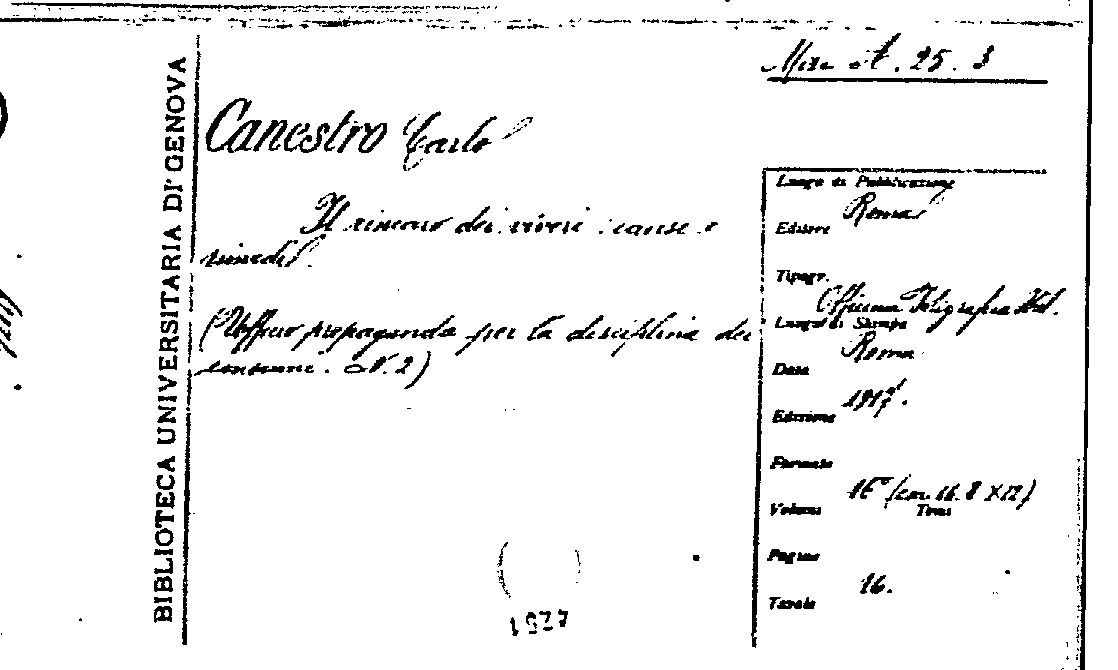 BIBLIOTECA UNIVERSITARIA DI GENOVA
A. 25. 3
Canestro Carlo
Il rincaro dei viveri: cause e
rimedi.
(Ufficio propaganda per la disciplina dei
consumi. N. 2)
Luogo di Pubblicazione
Roma
Editore
Tipogr.
Officina Poligrafica Ital.
Luogo di Stampa
Roma
Data
1917.
Edizione
Formato
16° (cm 16.8 X 12)
Volumi Tomi
Pagine
16.
Tavole